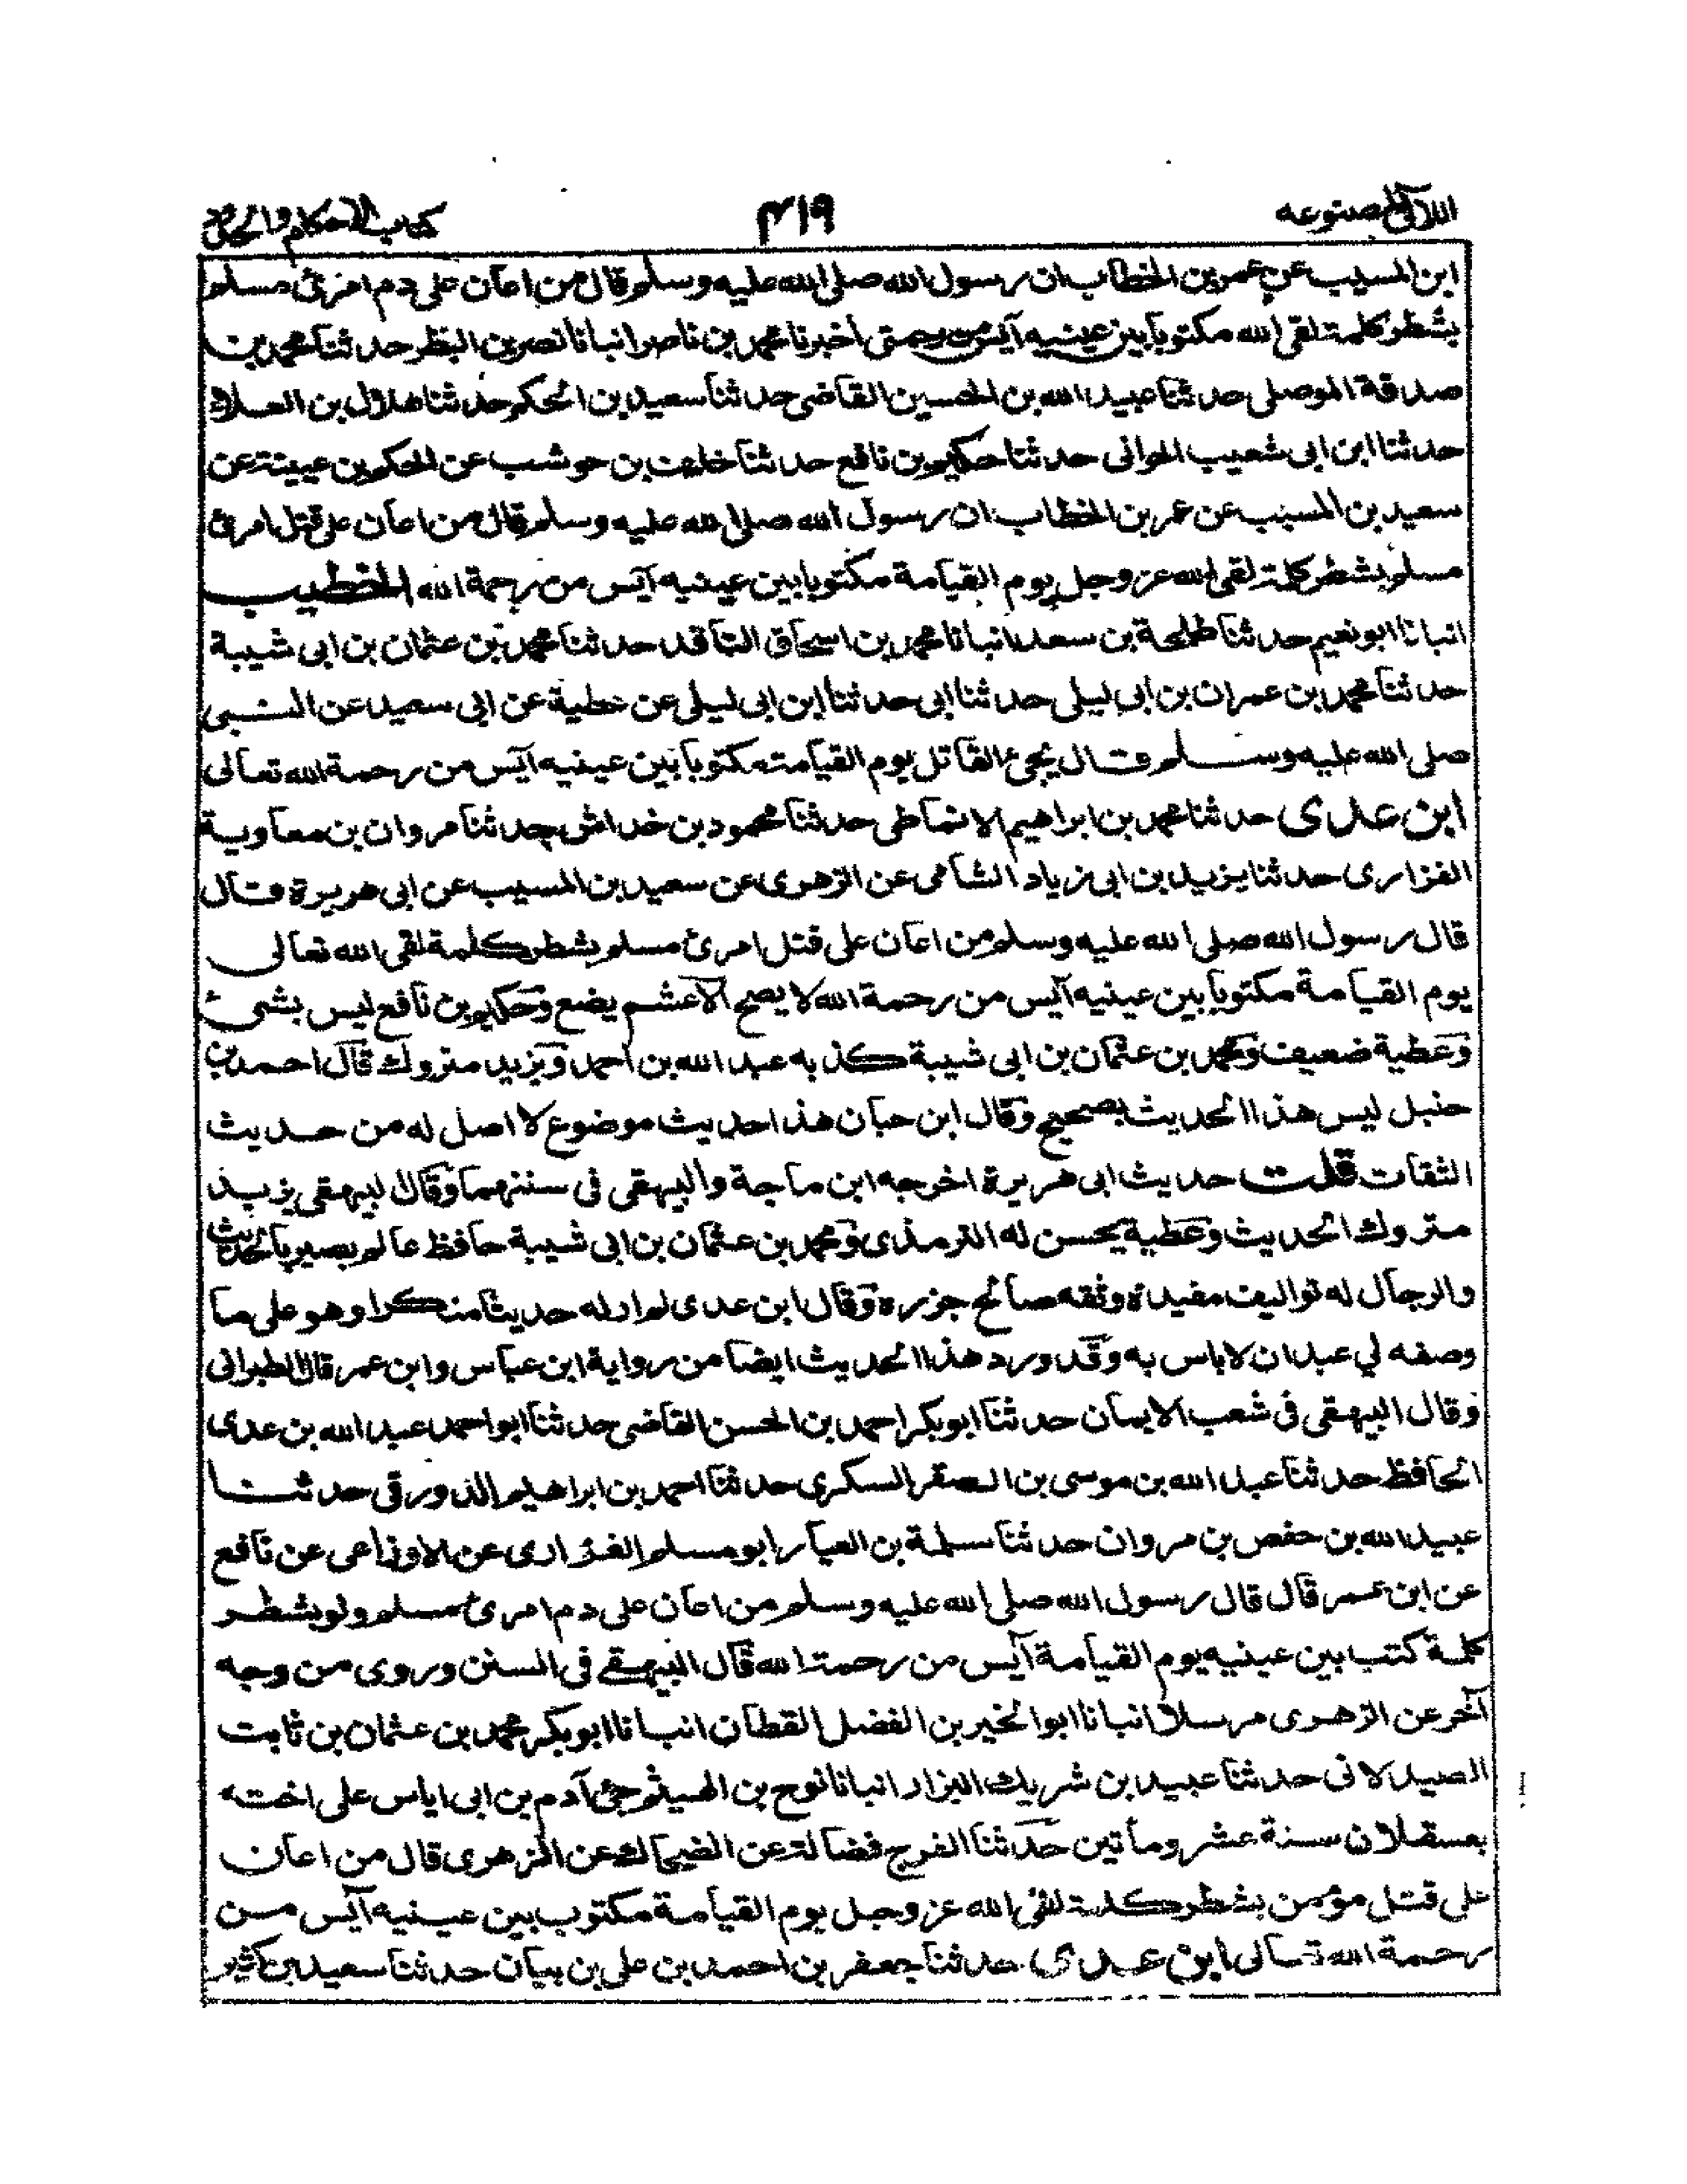 اللآلى المصنوعه ٤١٩ كتاب الاحكام والحدود
ابن المسيب عن عمر بن الخطاب ان رسول الله صلى الله عليه وسلم قال من اعان على دم امرئ مسلم
بشطر كلمة لقى الله مكتوبا بين عينيه آيس من رحمتى أخبرنا محمد بن ناصر انبانا نصر بن البظر حدثنا محمد بن
صدقة الموصلى حدثنا عبيد الله بن الحسين القاضى حدثنا سعيد بن الحكم حدثنا هلال بن العلاء
حدثنا ابن ابى شعيب الحوانى حدثنا حكيم بن نافع حدثنا خلف بن حوشب عن الحكم بن عيينة عن
سعيد بن المسيب عن عمر بن الخطاب ان رسول الله صلى الله عليه وسلم قال من اعان على قتل امرئ
مسلم بشطر كلمة لقى الله عز وجل يوم القيامة مكتوبا بين عينيه آيس من رحمة الله الخطيب
انبانا ابو نعيم حدثنا طلحة بن سعد انبانا محمد بن اسحاق الناقد حدثنا محمد بن عثمان بن ابى شيبة
حدثنا محمد بن عمران بن ابى ليلى حدثنا ابى حدثنا ابن ابى ليلى عن عطية عن ابى سعيد عن النبى
صلى الله عليه وسلم قال يجئ القاتل يوم القيامة مكتوبا بين عينيه آيس من رحمة الله تعالى
ابن عدى حدثنا محمد بن ابراهيم الانماطى حدثنا محمود بن خداش حدثنا مروان بن معاوية
الفزارى حدثنا يزيد بن ابى زياد الشامى عن الزهرى عن سعيد بن المسيب عن ابى هريرة قال
قال رسول الله صلى الله عليه وسلم من اعان على قتل امرئ مسلم بشطر كلمة لقى الله تعالى
يوم القيامة مكتوبا بين عينيه آيس من رحمة الله لا يصح الاعشم يضع وحكيم بن نافع ليس بشئ
وعطية ضعيف ومحمد بن عثمان بن ابى شيبة كذبه عبد الله بن احمد ويزيد متروك قال احمد بن
حنبل ليس هذا الحديث بصحيح وقال ابن حبان هذا حديث موضوع لا اصل له من حديث
الثقات قلت حديث ابى هريرة اخرجه ابن ماجة والبيهقى فى سننهما وقال البيهقى يزيد
متروك الحديث وعطية يحسن له الترمذى ومحمد بن عثمان بن ابى شيبة حافظ عالم بصير بالحديث
والرجال له تواليف مفيدة وثقه صالح جزرة وقال ابن عدى لم ار له حديثا منكرا وهو على ما
وصفه لي عبدان لاباس به وقد ورد هذا الحديث ايضا من رواية ابن عباس وابن عمر قال الطبرانى
وقال البيهقى فى شعب الايمان حدثنا ابو بكر احمد بن الحسن القاضى حدثنا ابو احمد عبد الله بن عدى
الحافظ حدثنا عبد الله بن موسى بن الصقر السكرى حدثنا احمد بن ابراهيم الدورقى حدثنا
عبيد الله بن حفص بن مروان حدثنا سلمة بن العيار ابو مسلم الفزارى عن الاوزاعى عن نافع
عن ابن عمر قال قال رسول الله صلى الله عليه وسلم من اعان على دم امرئ مسلم ولو بشطر
كلمة كتب بين عينيه يوم القيامة آيس من رحمة الله قال البيهقى فى السنن وروى من وجه
آخر عن الزهرى مرسلا انبانا ابو الخير بن الفضل القطان انبانا ابو بكر محمد بن عثمان بن ثابت
الصيدلانى حدثنا عبيد بن شريك البزار انبانا نوح بن الهيثم جئ آدم بن ابى اياس على اخته
بعسقلان سنة عشر ومأتين حدثنا الفرج فضالة عن الضحاك عن الزهرى قال من اعان
على قتل مؤمن بشطر كلمة لقى الله عز وجل يوم القيامة مكتوب بين عينيه آيس من
رحمة الله تعالى ابن عدى حدثنا جعفر بن احمد بن على بن بيان حدثنا سعيد بن كثير